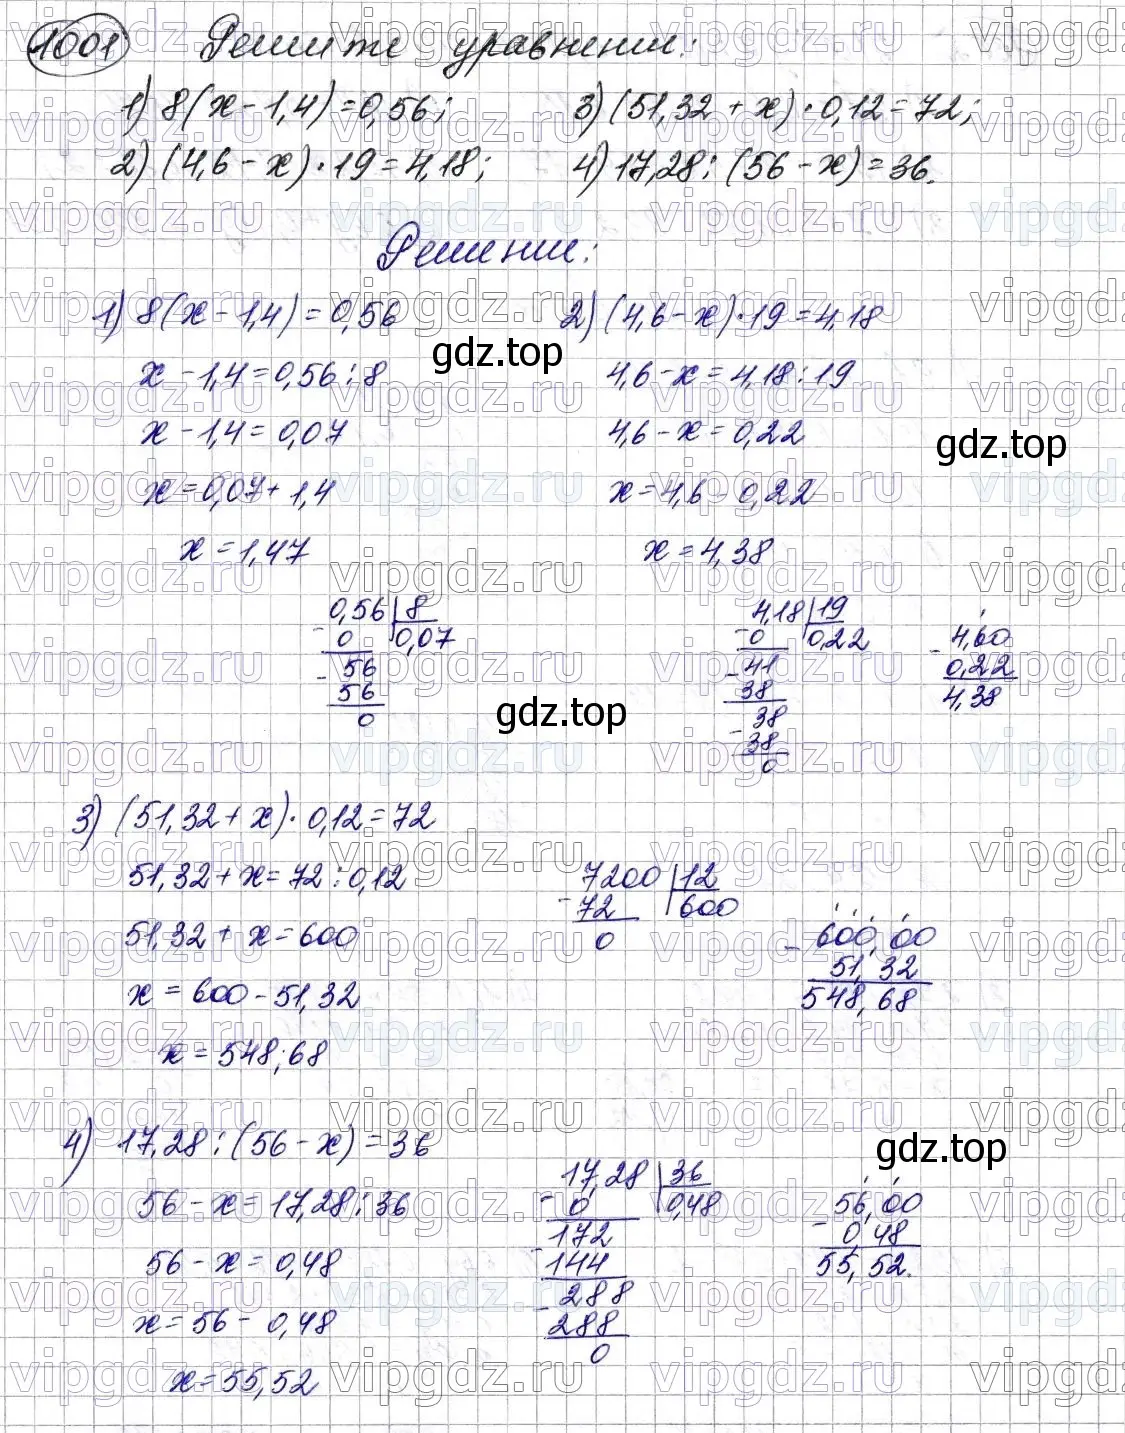 1001 Решите уравнения:
1) 8(x-1,4)=0,56;
2) (4,6-x)·19=4,18;
3) (51,32+x)·0,12=72;
4) 17,28:(56-x)=36.
Решение:
1) 8(x-1,4)=0,56
x-1,4=0,56:8
x-1,4=0,07
x=0,07+1,4
x=1,47
0,56 | 8
- 0 | 0,07
56
- 56
0
2) (4,6-x)·19=4,18
4,6-x=4,18:19
4,6-x=0,22
x=4,6-0,22
x=4,38
4,18 | 19
- 0 | 0,22
41
- 38
38
- 38
0
4,60
- 0,22
4,38
3) (51,32+x)·0,12=72
51,32+x=72:0,12
51,32+x=600
x=600-51,32
x=548,68
7200 | 12
- 72 | 600
0
600,00
- 51,32
548,68
4) 17,28:(56-x)=36
56-x=17,28:36
56-x=0,48
x=56-0,48
x=55,52
17,28 | 36
- 0 | 0,48
172
- 144
288
- 288
0
56,00
- 0,48
55,52.
gdz.top
gdz.top
gdz.top
gdz.top
vipgdz.ru